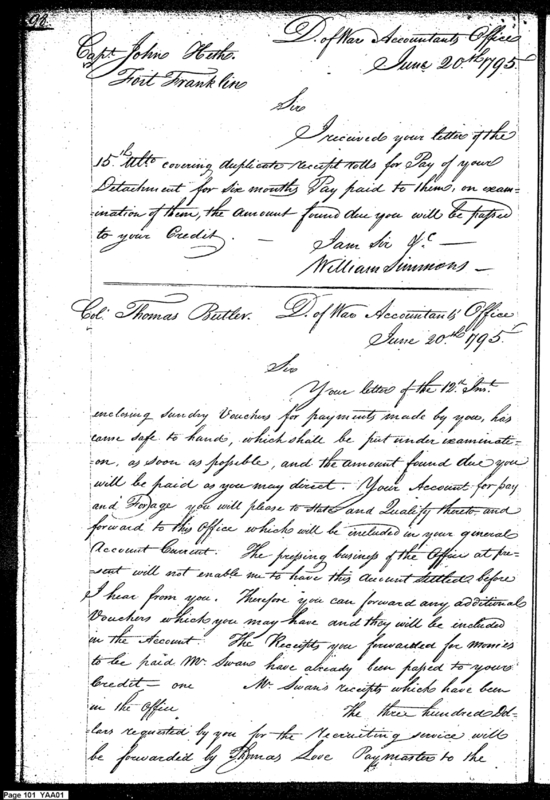 98.
Capt. John Heth. D. of War Accountants Office
Fort Franklin June 20.th 1795
Sir
I received your letter of the
15th Ulto covering duplicate receipt rolls for Pay of your
Detachment for six months Pay paid to them, on exam-
-ination of them, the amount found due you will be passed
to your Credit. — I am Sir &c —
William Simmons —
Col. Thomas Butler. D. of War Accountants' Office
June 20.th 1795.
Sir
Your letter of the 12.th Inst.
enclosing sundry Vouchers for payments made by you, has
came safe to hand, which shall be put under examinati-
-on, as soon as possible, and the amount found due you
will be paid as you may direct. Your Account for pay
and Forage you will please to state and Qualify thereto and
forward to this Office which will be included in your general
Account Current. The pressing business of the Office at pre-
-sent will not enable me to have this Account settled before
I hear from you. Therefore you can forward any additional
Vouchers which you may have and they will be included
in the Account. The Receipts you forwarded for monies
to be paid Mr. Swan have already been passed to your
Credit — one Mr. Swan's receipts which have been
in the Office The three hundred Dol-
-lars requested by you for the recruiting service will
be forwarded by Thomas Love Paymaster to the
Page 101 YAA01